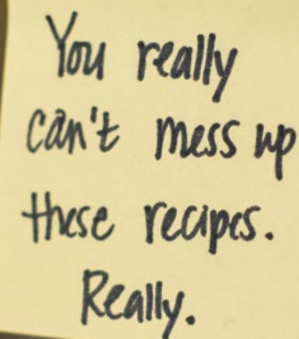 You really
can't mess up
these recipes.
Really.